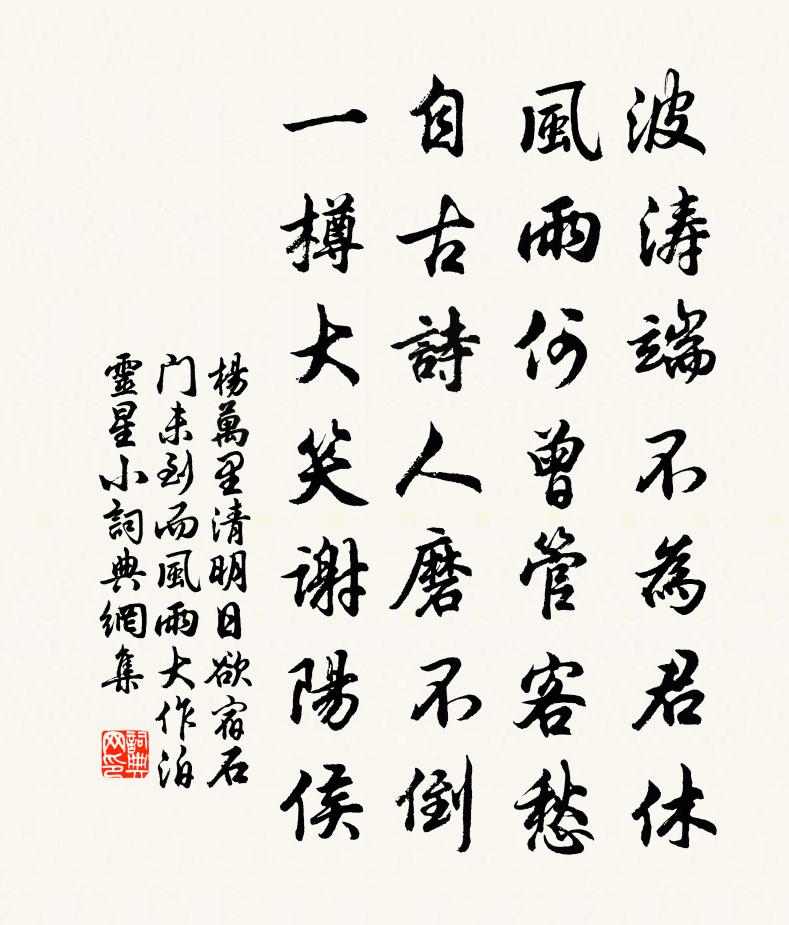 波涛端不為君休
風雨何曾管客愁
自古詩人磨不倒
一樽大笑谢陽侯
楊萬里清明日欲宿石
门未到而風雨大作泊
靈星小詞典網集
詞典网印